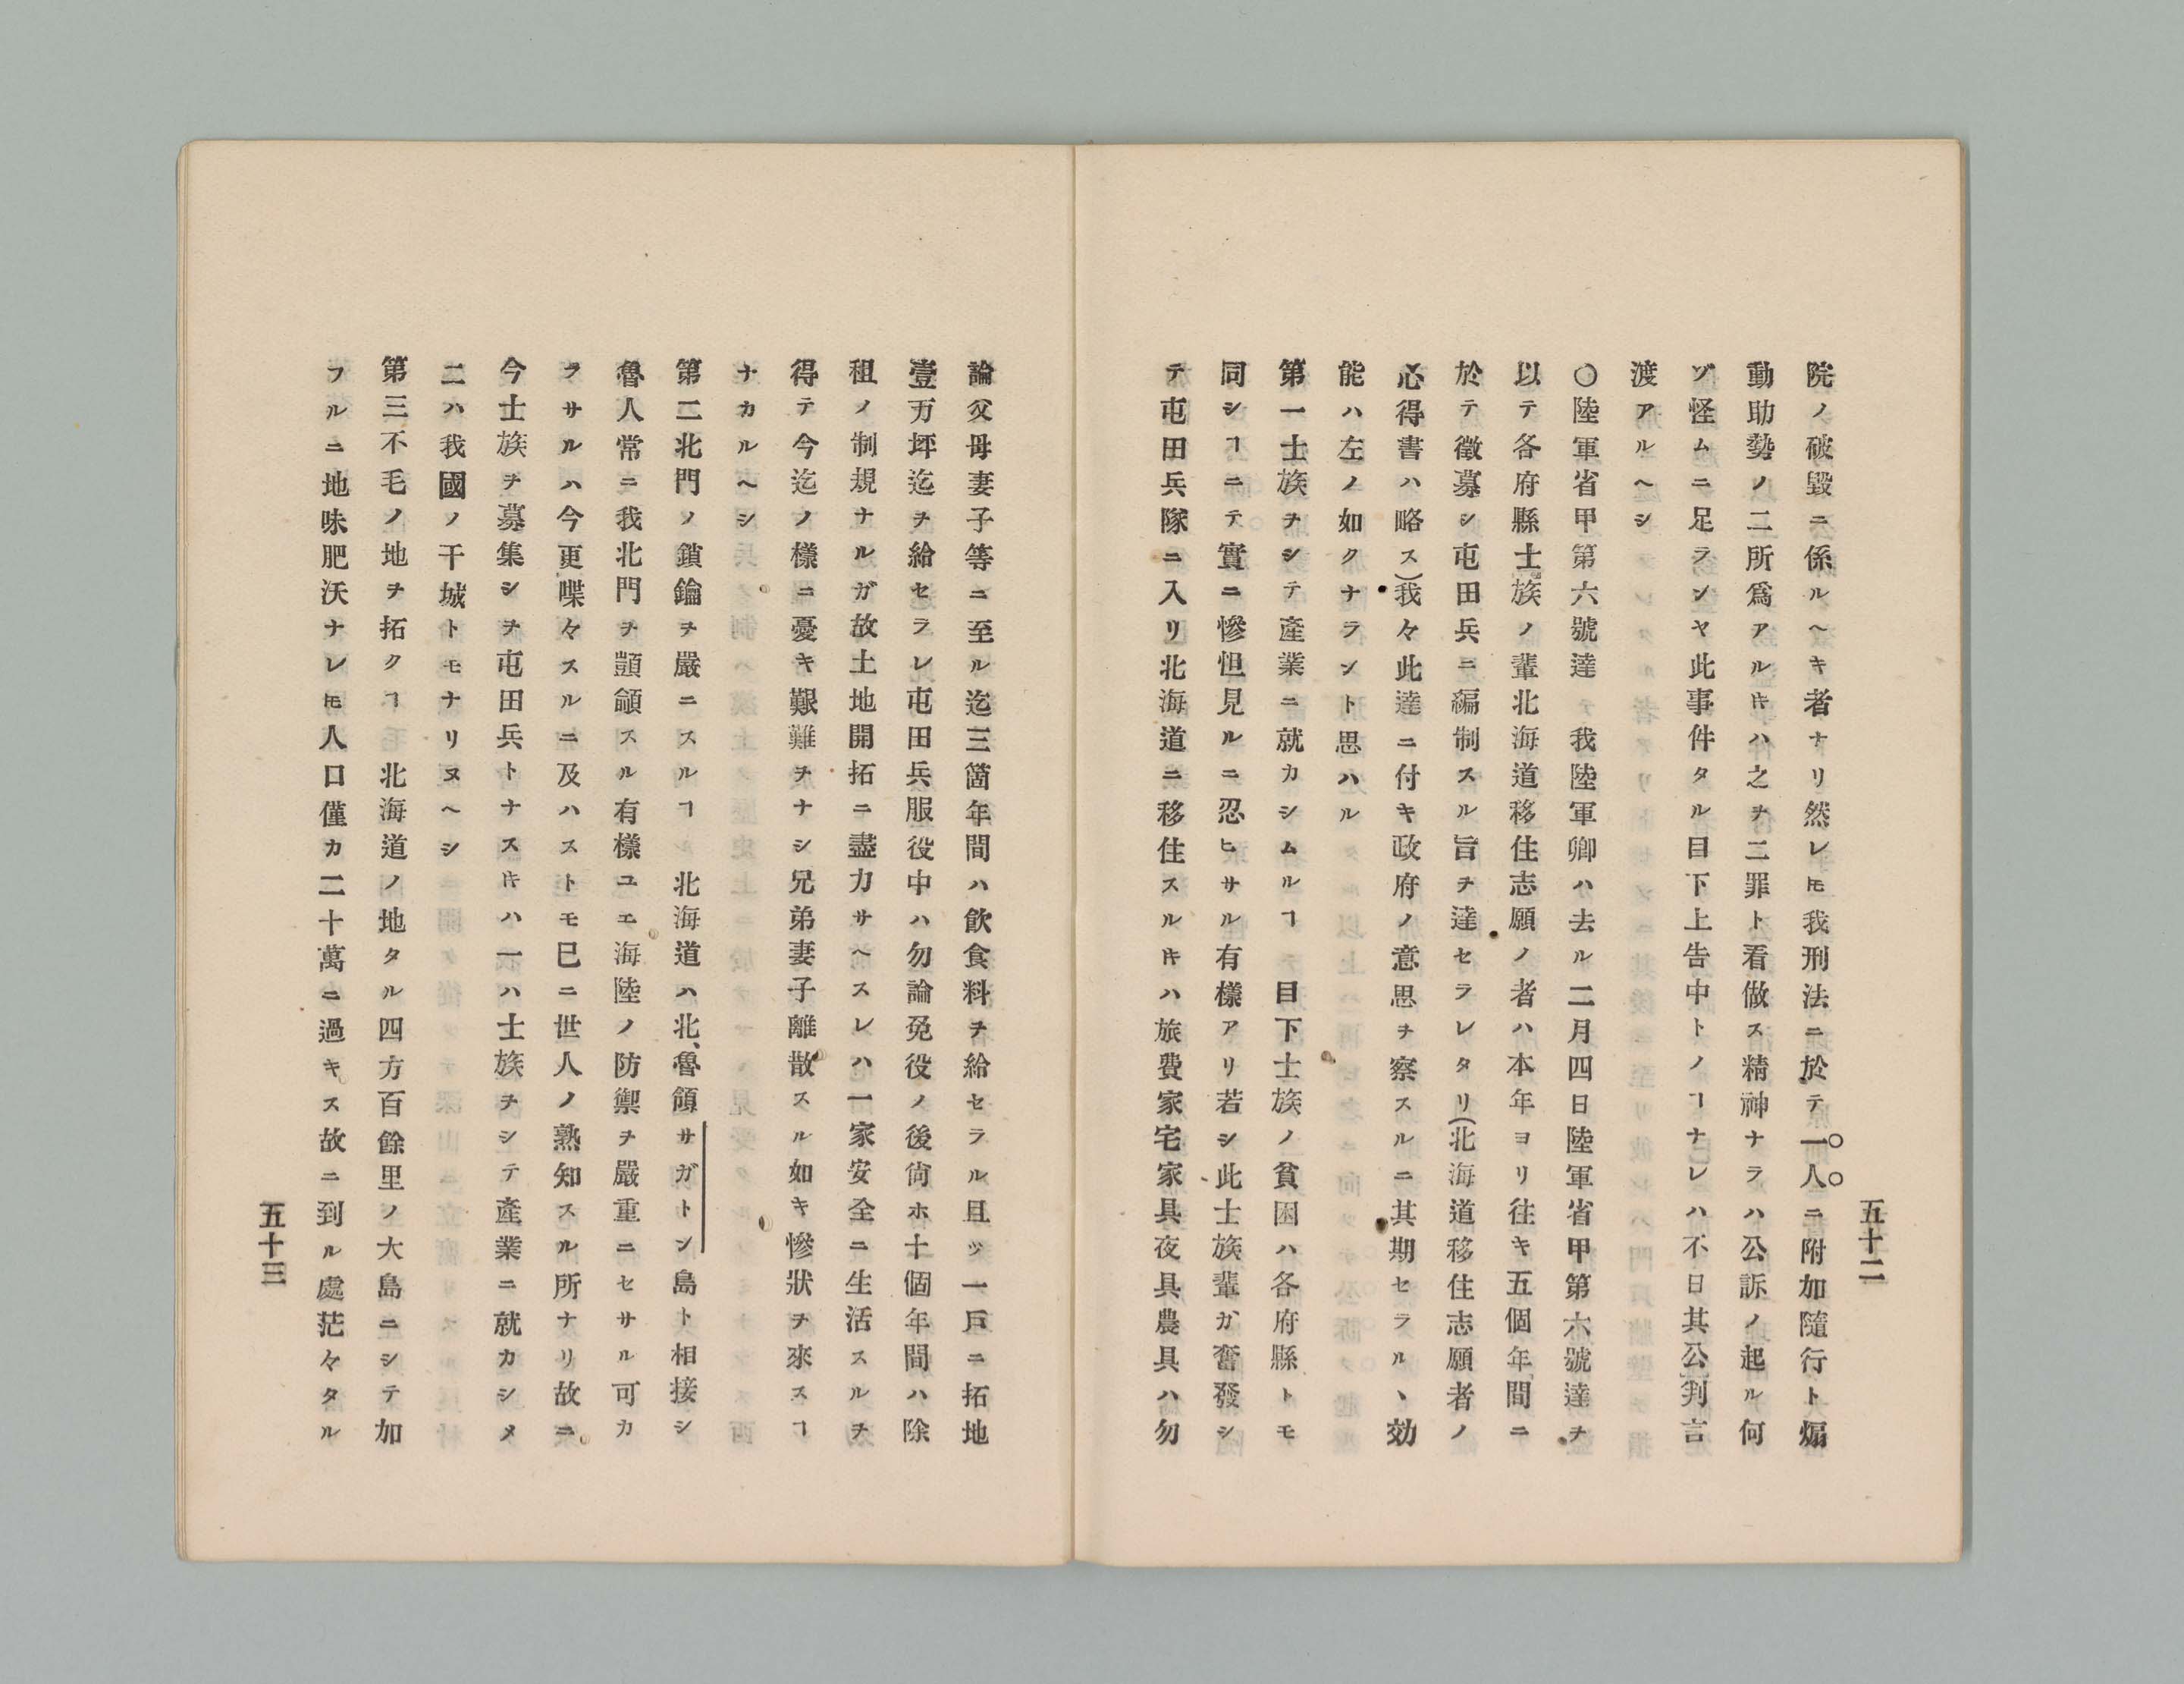 五十二
院ノ破毀ニ係ルヘキ者ナリ然レㇳモ我刑法ニ於テ一人ニ附加隨行ト煽
動助勢ノ二所爲アルキハ之ヲ二罪ト看做ス精神ナラハ公訴ノ起ル何
ゾ怪ムニ足ランヤ此事件タル目下上告中トノヿナレハ不日其公判言
渡アルヘシ
○陸軍省甲第六號達 我陸軍卿ハ去ル二月四日陸軍省甲第六號達ヲ
以テ各府縣士族ノ輩北海道移住志願ノ者ハ本年ヨリ往キ五個年間ニ
於テ徵募シ屯田兵ニ編制スル旨ヲ達セラレタリ(北海道移住志願者ノ
心得書ハ略ス)我々此達ニ付キ政府ノ意思ヲ察スルニ其期セラルヽ効
能ハ左ノ如クナラント思ハル
第一士族ヲシテ產業ニ就カシムルヿ 目下士族ノ貧困ハ各府縣トモ
同シヿニテ實ニ慘怛見ルニ忍ヒサル有樣アリ若シ此士族輩ガ奮發シ
テ屯田兵隊ニ入リ北海道ニ移住スルキハ旅費家宅家具夜具農具ハ勿
論父母妻子等ニ至ル迄三箇年間ハ飮食料ヲ給セラル且ツ一戶ニ拓地
壹万坪迄ヲ給セラレ屯田兵服役中ハ勿論免役ノ後尙ホ十個年間ハ除
租ノ制規ナルガ故土地開拓ニ盡力サヘスレハ一家安全ニ生活スルヲ
得テ今迄ノ樣ニ憂キ艱難ヲナシ兄弟妻子離散スル如キ慘狀ヲ來スヿ
ナカルヘシ
第二北門ノ鎖鑰ヲ嚴ニスルヿ 北海道ハ北、魯領サガトン島ト相接シ
魯人常ニ我北門ヲ顗顲スル有樣ユエ海陸ノ防禦ヲ嚴重ニセサル可カ
ラサルハ今更喋々スルニ及ハストモ已ニ世人ノ熟知スル所ナリ故ニ
今士族ヲ募集シヲ屯田兵トナスキハ一ハ士族ヲシテ產業ニ就カシメ
二ハ我國ノ干城トモナリヌヘシ
第三不毛ノ地ヲ拓クヿ 北海道ノ地タル四方百餘里ノ大島ニシテ加
フルニ地味肥沃ナレㇳモ人口僅カ二十萬ニ過キス故ニ到ル處茫々タル
五十三